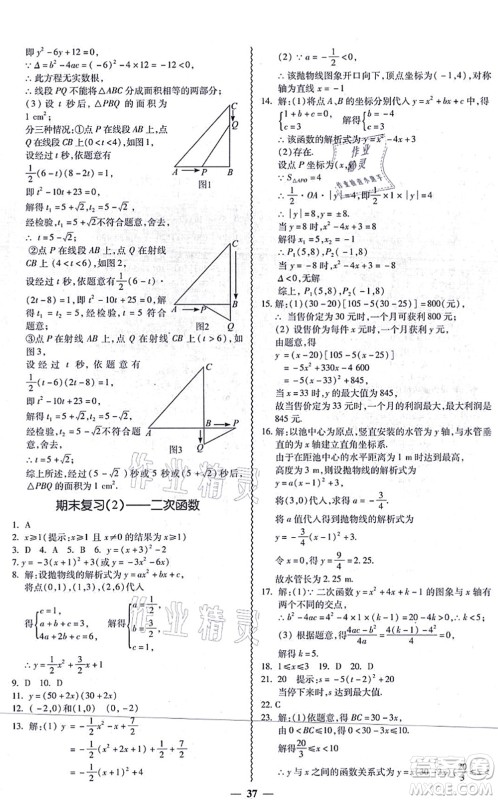 即t²-6t+12=0,
∵Δ=b²-4ac=(-6)²-4×12=-12<0,
∴此方程无实数根,
∴线段PQ不能将△ABC分成面积相等的两部分;
(3)设t秒后,△PBQ的面积为1 cm²,
分三种情况:①点P在线段AB上,点Q在线段CB上(0<t≤4),如图1,
设经过t秒,依题意有
1/2(6-t)(8-2t)=1,
即t²-10t+23=0,
解得t₁=5+√2,t₂=5-√2,
经检验,t₁=5+√2不符合题意,舍去,
∴t=5-√2;
图1
②点P在线段AB上,点Q在射线CB上(4<t≤6),如图2,
设经过t秒,依题意有1/2(6-t)(2t-8)=1,
即t²-10t+25=0,
解得t₁=t₂=5,
经检验,t=5符合题意;
图2
③点P在射线AB上,点Q在射线CB上(t>6),如图3,
设经过t秒,依题意有
1/2(t-6)(2t-8)=1,
即t²-10t+23=0,
解得t₁=5+√2,t₂=5-√2,
经检验,t=5-√2不符合题意,舍去,
∴t=5+√2;
图3
综上所述,经过(5-√2)秒或5秒或(5+√2)秒后,△PBQ的面积为1 cm².
期末复习(2)——二次函数
1. A
2. x≥1(提示:x≥1且x≠0的结果为x≥1)
3. D 4. A 5. B 6. D
7. y=-6(x-1)²+3(或y=-3(x-2)²)
8. 解:设抛物线的解析式为y=ax²+bx+c,
将点(0,1),(2,1),(3,4)代入
9. D 10. D
11. y=(50+2x)(30+2x)
12. (-2,0)和(1,0) (0,-2)
13. 解:(1)y=-1/2x²-x+7/2
=-1/2(x²+2x)+7/2
=-1/2(x+1)²+4
(2)∵a=-1/2<0,
∴该抛物线图象开口向下,顶点为(-1,4),对称轴为直线x=-1
14. 解:(1)将点A,B的坐标分别代入y=x²+bx+c中,得
∴该函数的解析式为y=x²-4x+3
(2)存在.
设点P坐标为(x,y),
∴1/2·OA·|y|=4,即1/2×1×|y|=4
∴|y|=8,∴y=±8
当y=8时,x²-4x+3=8
解得x₁=5,x₂=-1
∴P₁(5,8),P₂(-1,8)
当y=-8时,x²-4x+3=-8
Δ<0,无解.
∴P₁(5,8),P₂(-1,8)
15. 解:(1)(30-20)[105-5(30-25)]=800(元),
∴当售价为30元时,一个月可获利800元;
(2)设售价为每件x元时,一个月的获利为y元,
由题意,得
y=(x-20)[105-5(x-25)]
=-5x²+330x-4600
=-5(x-33)²+845
当x=33时,y的最大值为845,
故当售价定为33元时,一个月的利润最大,最大利润是845元.
16. 解:以池中心为原点,竖直安装的水管为y轴,与水管垂直的为x轴建立直角坐标系.
由于在距池中心的水平距离为1 m时达到最高,高度为3 m,则设抛物线的解析式为
y=a(x-1)²+3(0≤x≤3),
代入(3,0),求得a=-3/4.
将a值代入得到抛物线的解析式为
y=-3/4(x-1)²+3(0≤x≤3),
令x=0,则y=9/4=2.25.
故水管长为2.25 m.
17. 解:(1)∵二次函数y=x²+4x+k-1的图象与x轴有两个不同的交点,
∴b²-4ac=4²-4×1×(k-1)=20-4k>0
∴k<5.
解得k=5.
18. 1≤x≤3 19. D 20. D
21. 20 提示:s=-5(t-2)²+20,
当停下来时,s达到最大值.
22. C
23. 解:(1)依题意,得BC=30-3x,
由0<BC≤10,得0<30-3x≤10,
解得20/3≤x<10
37
作业精灵